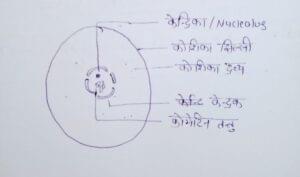 केन्द्रिका/Nucleolus
कोशिका झिल्ली
कोशिका द्रव्य
केन्द्रक
क्रोमेटिन तन्तु